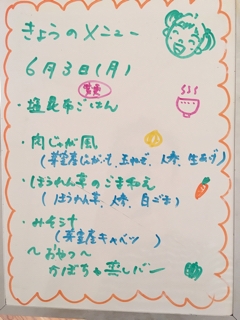 きょうのメニュー
6月3日(月)
・塩昆布ごはん
・肉じゃが風
(芽室産じゃがいも、玉ねぎ、人参、生あげ)
・ほうれん草のごま和え
(ほうれん草、人参、白ごま)
・みそ汁
(芽室産キャベツ )
〜おやつ〜
かぼちゃ蒸しパン